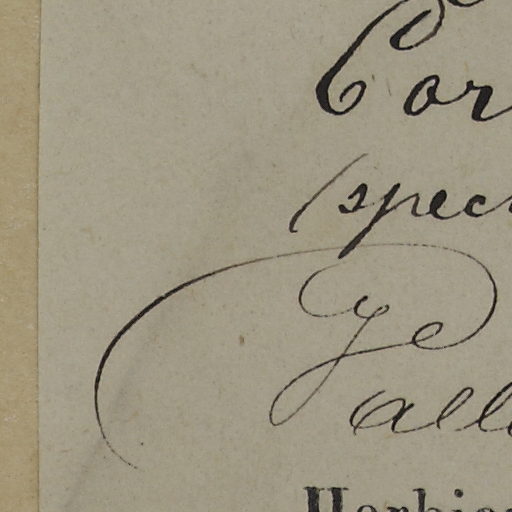 Cor
(spec
Ge
all
Herbie